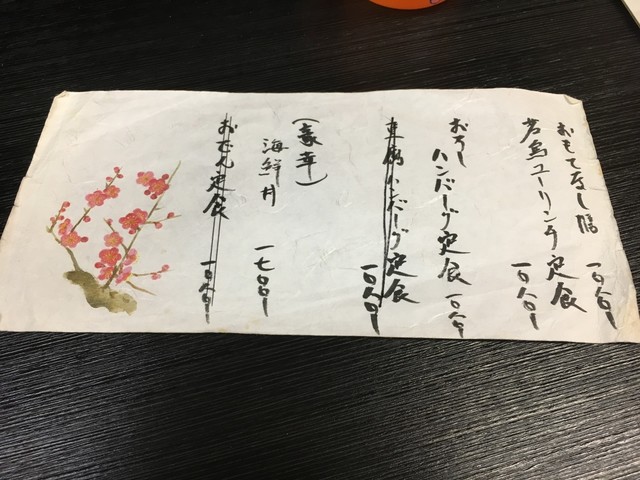 おもてなし膳 一〇八〇
若鳥ユーリンチ定食 一〇八〇
おろしハンバーグ定食 一〇八〇
ハンバーグ定食 一〇八〇
(豪華)
海鮮丼 一七〇〇
おでん定食 一〇八〇